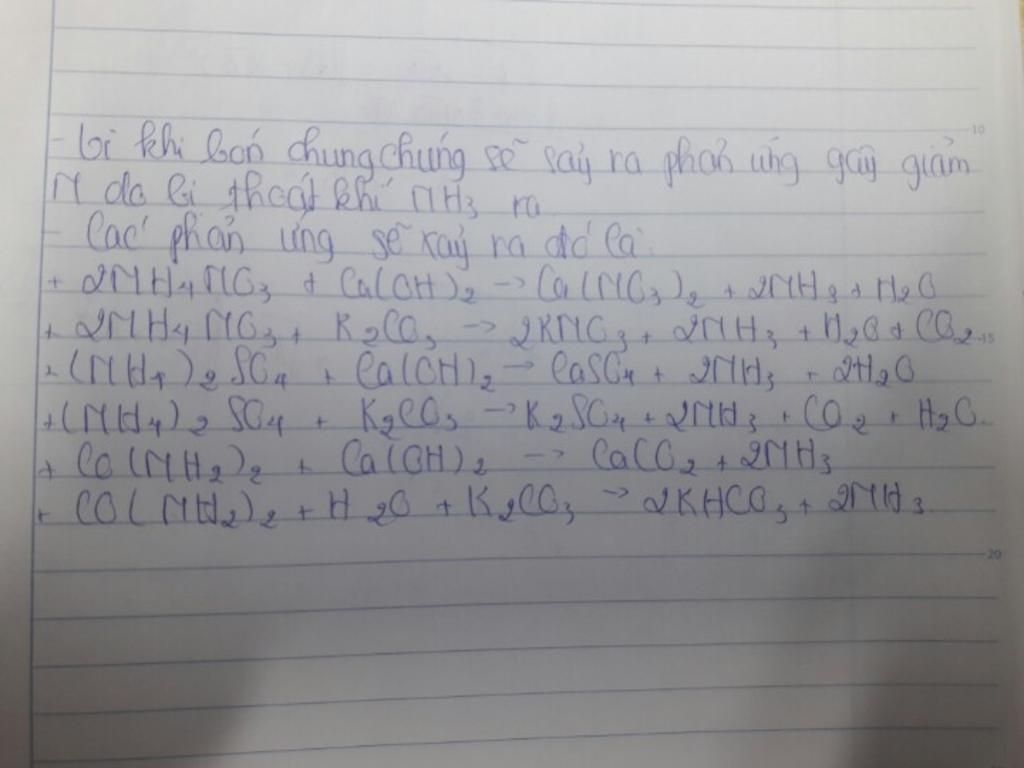 - Vì khi bón chung chúng sẽ sảy ra phản ứng gây giảm
N do bị thoát khí NH3 ra
- Các phản ứng sẽ xảy ra đó là:
+ 2NH4NO3 + Ca(OH)2 → Ca(NO3)2 + 2NH3 + H2O
+ 2NH4NO3 + K2CO3 → 2KNO3 + 2NH3 + H2O + CO2
+ (NH4)2SO4 + Ca(OH)2 → CaSO4 + 2NH3 + 2H2O
+ (NH4)2SO4 + K2CO3 → K2SO4 + 2NH3 + CO2 + H2O.
+ CO(NH2)2 + Ca(OH)2 → CaCO2 + 2NH3
+ CO(NH2)2 + H2O + K2CO3 → 2KHCO3 + 2NH3.
10
15
20